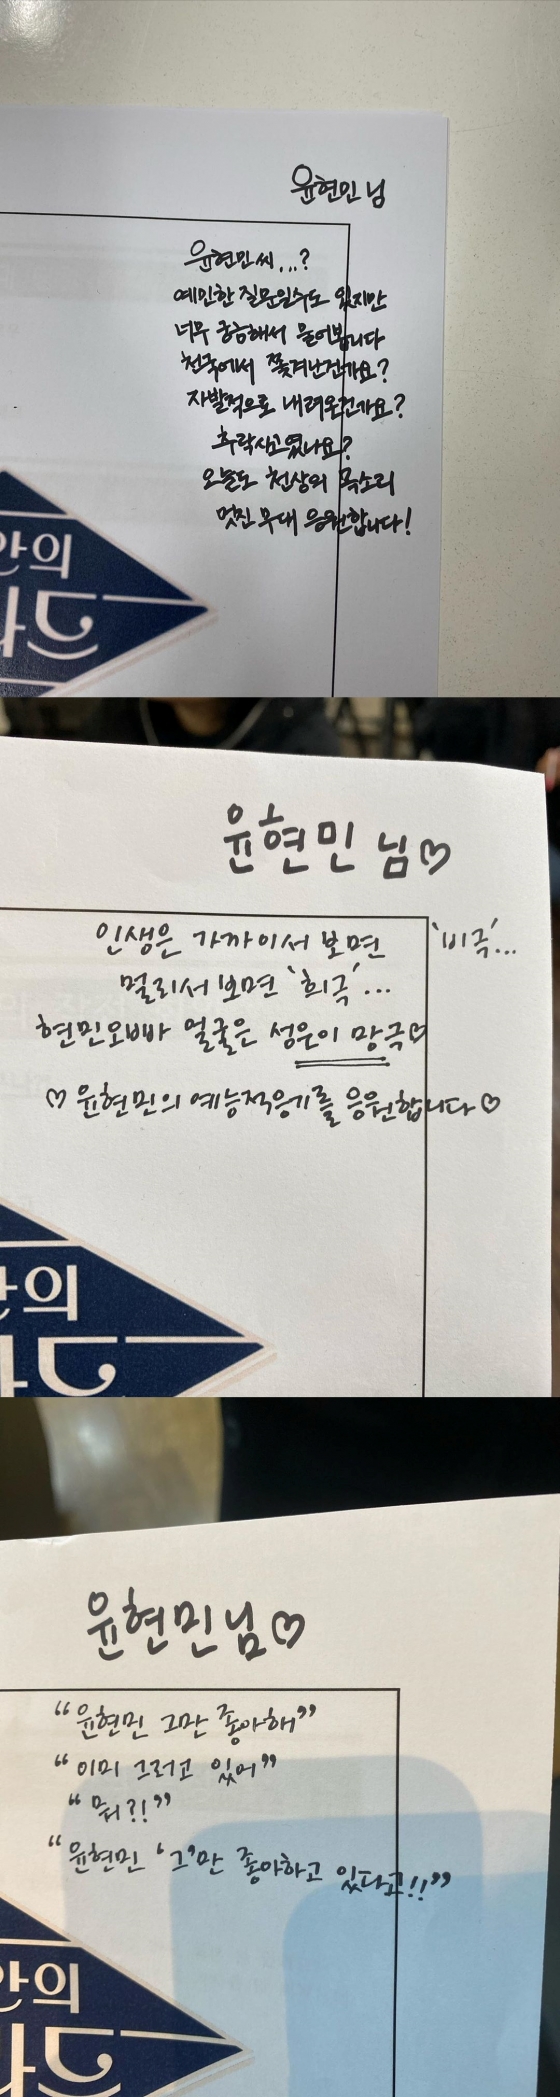 윤현민 님
윤현민씨...?
예민한 질문일수도 있지만
너무 궁금해서 물어봅니다
천국에서 쫓겨난건가요?
자발적으로 내려온건가요?
추락사고였나요?
오늘도 천상의 목소리
멋진 무대 응원합니다!
안의
윤현민 님♡
인생은 가까이서 보면 '비극'...
멀리서 보면 '희극'...
현민오빠 얼굴은 성은이 망극♡
♡ 윤현민의 예능적응기를 응원합니다 ♡
안의
윤현민님♡
“윤현민 그만 좋아해”
“이미 그러고 있어”
“뭐?!”
“윤현민 '그'만 좋아하고 있다고!!”
안의